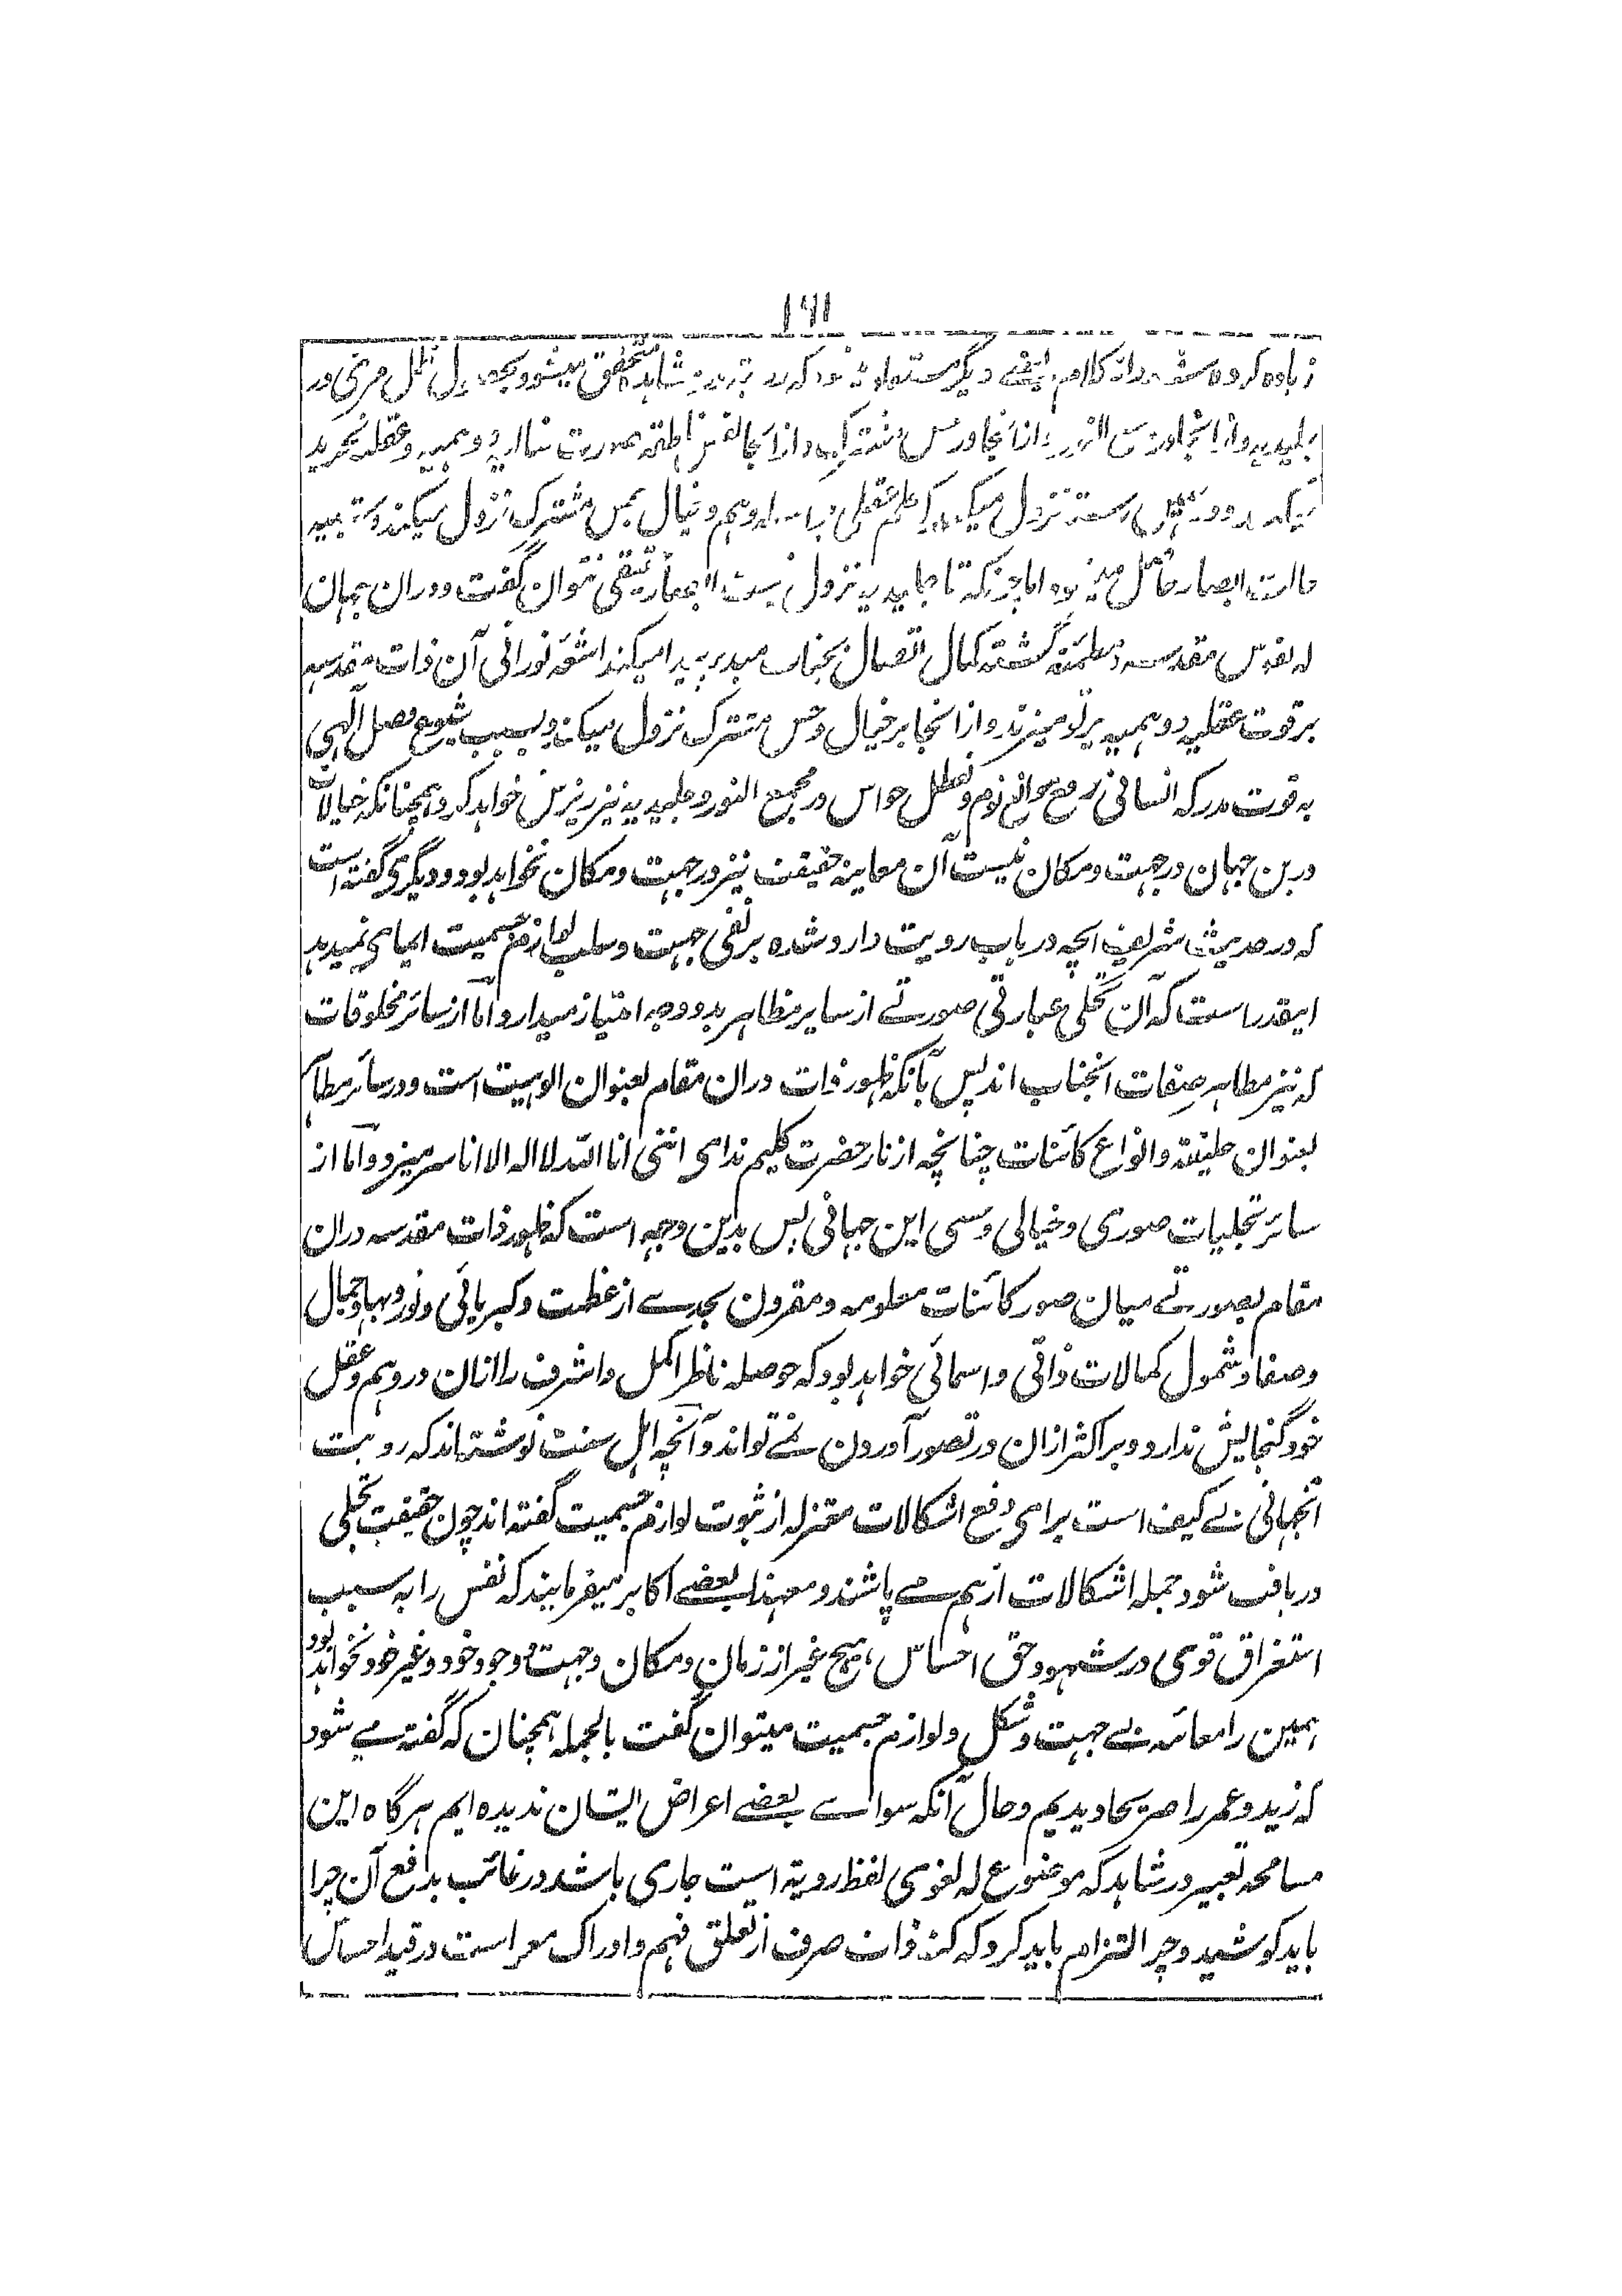 ۱۶۱
زیاده کرده کلام دیگر که متحقق میشود مرئی در
جلیدیه و از آنجا در و از آنجا در حس مشترک و از آنجا نفس ناطقه صورت خیالیه و وهمیه و عقله تجرید
میکند نزول میکند علم عقلی وهم و خیال بحس مشترک نزول میکند و شبیه
حالت ابصار حاصل میشود اما چونکه تا جلیدیه نزول نیست ابصار حقیقی نتوان گفت و دران جهان
که نفوس مقدسه مطمئنه گشته کمال اتصال بجناب مبدء پیدا میکند اشعه نورانی آن ذات مقدسه
بر قوت عقلیه و وهمیه پرتو میزند و از انجا بر خیال و حس مشترک نزول میکند و بسبب شیوع فضل آلهی
به قوت مدرکه انسانی و رفع موانع نوم و تعطل حواس در مجمع النور و جلیدیه نیز ریزش خواهد کرد و همچنانکه خیالات
درین جهان در جهت و مکان نیست آن معاینه حقیقت نیز در جهت و مکان نخواهد بود و دیگری گفته است
که در حدیث شریف آنچه در باب رویت وارد شده بر نفی جهت و سلب لوازم جسمیت ایمای نمیدهد
اینقدر است که آن تجلی عبارتی صورتے از سایر مظاهر بدو وجه امتیاز میدارد و اما از سائر مخلوقات
که نیز مظاهر صفات آنجناب اند پس بآنکه ظهور ذات دران مقام بعنوان الوهیت است و در سائر مظاهر
بعنوان خلیقه و انواع کائنات چنانچه از نار حضرت کلیم ندای اننی انا الله لا اله الا انا سر میزد و اما از
سائر تجلیات صوری و خیالی و حسی این جهانی پس بدین وجه است که ظهور ذات مقدسه دران
مقام بصورتے میان صور کائنات معلومه و مقرون بحدے از عظمت و کبریائی و نور و بها و جمال
و صفا و شمول کمالات ذاتی و اسمائی خواهد بود که حوصله ناظر اکمل و اشرف را ازان در وهم و عقل
خود گنجایش ندارد و بر اکثر ازان در تصور آوردن نمے تواند و آنچه اهل سنت نوشته اند که رویت
آنجهانی بے کیف است برای دفع اشکالات معتزله از ثبوت لوازم جسمیت گفته اند چون حقیقت تجلی
دریافت شود جمله اشکالات از هم مے پاشند و معهذا بعضے اکابر میفرمایند که نفس را به سبب
استغراق قوی در شهود حق احساس هیچ غیر از زمان و مکان و جهت و وجود خود و غیر خود نخواهد بود
همین را معائنه بے جهت و شکل و لوازم جسمیت میتوان گفت بالجمله همچنان که گفته مے شود
که زید و عمر را صریحا دیدیم و حال آنکه سواے بعضے اعراض ایشان ندیده ایم هر گاه این
مسامحه تعبیر در شاهد که موضوع له لغوی لفظ رویة است جاری باشد در غائب بدفع آن چرا
باید کوشید و چرا التزام باید کرد که کنه ذات صرف از تعلق فهم و ادراک معراست در قید احساس